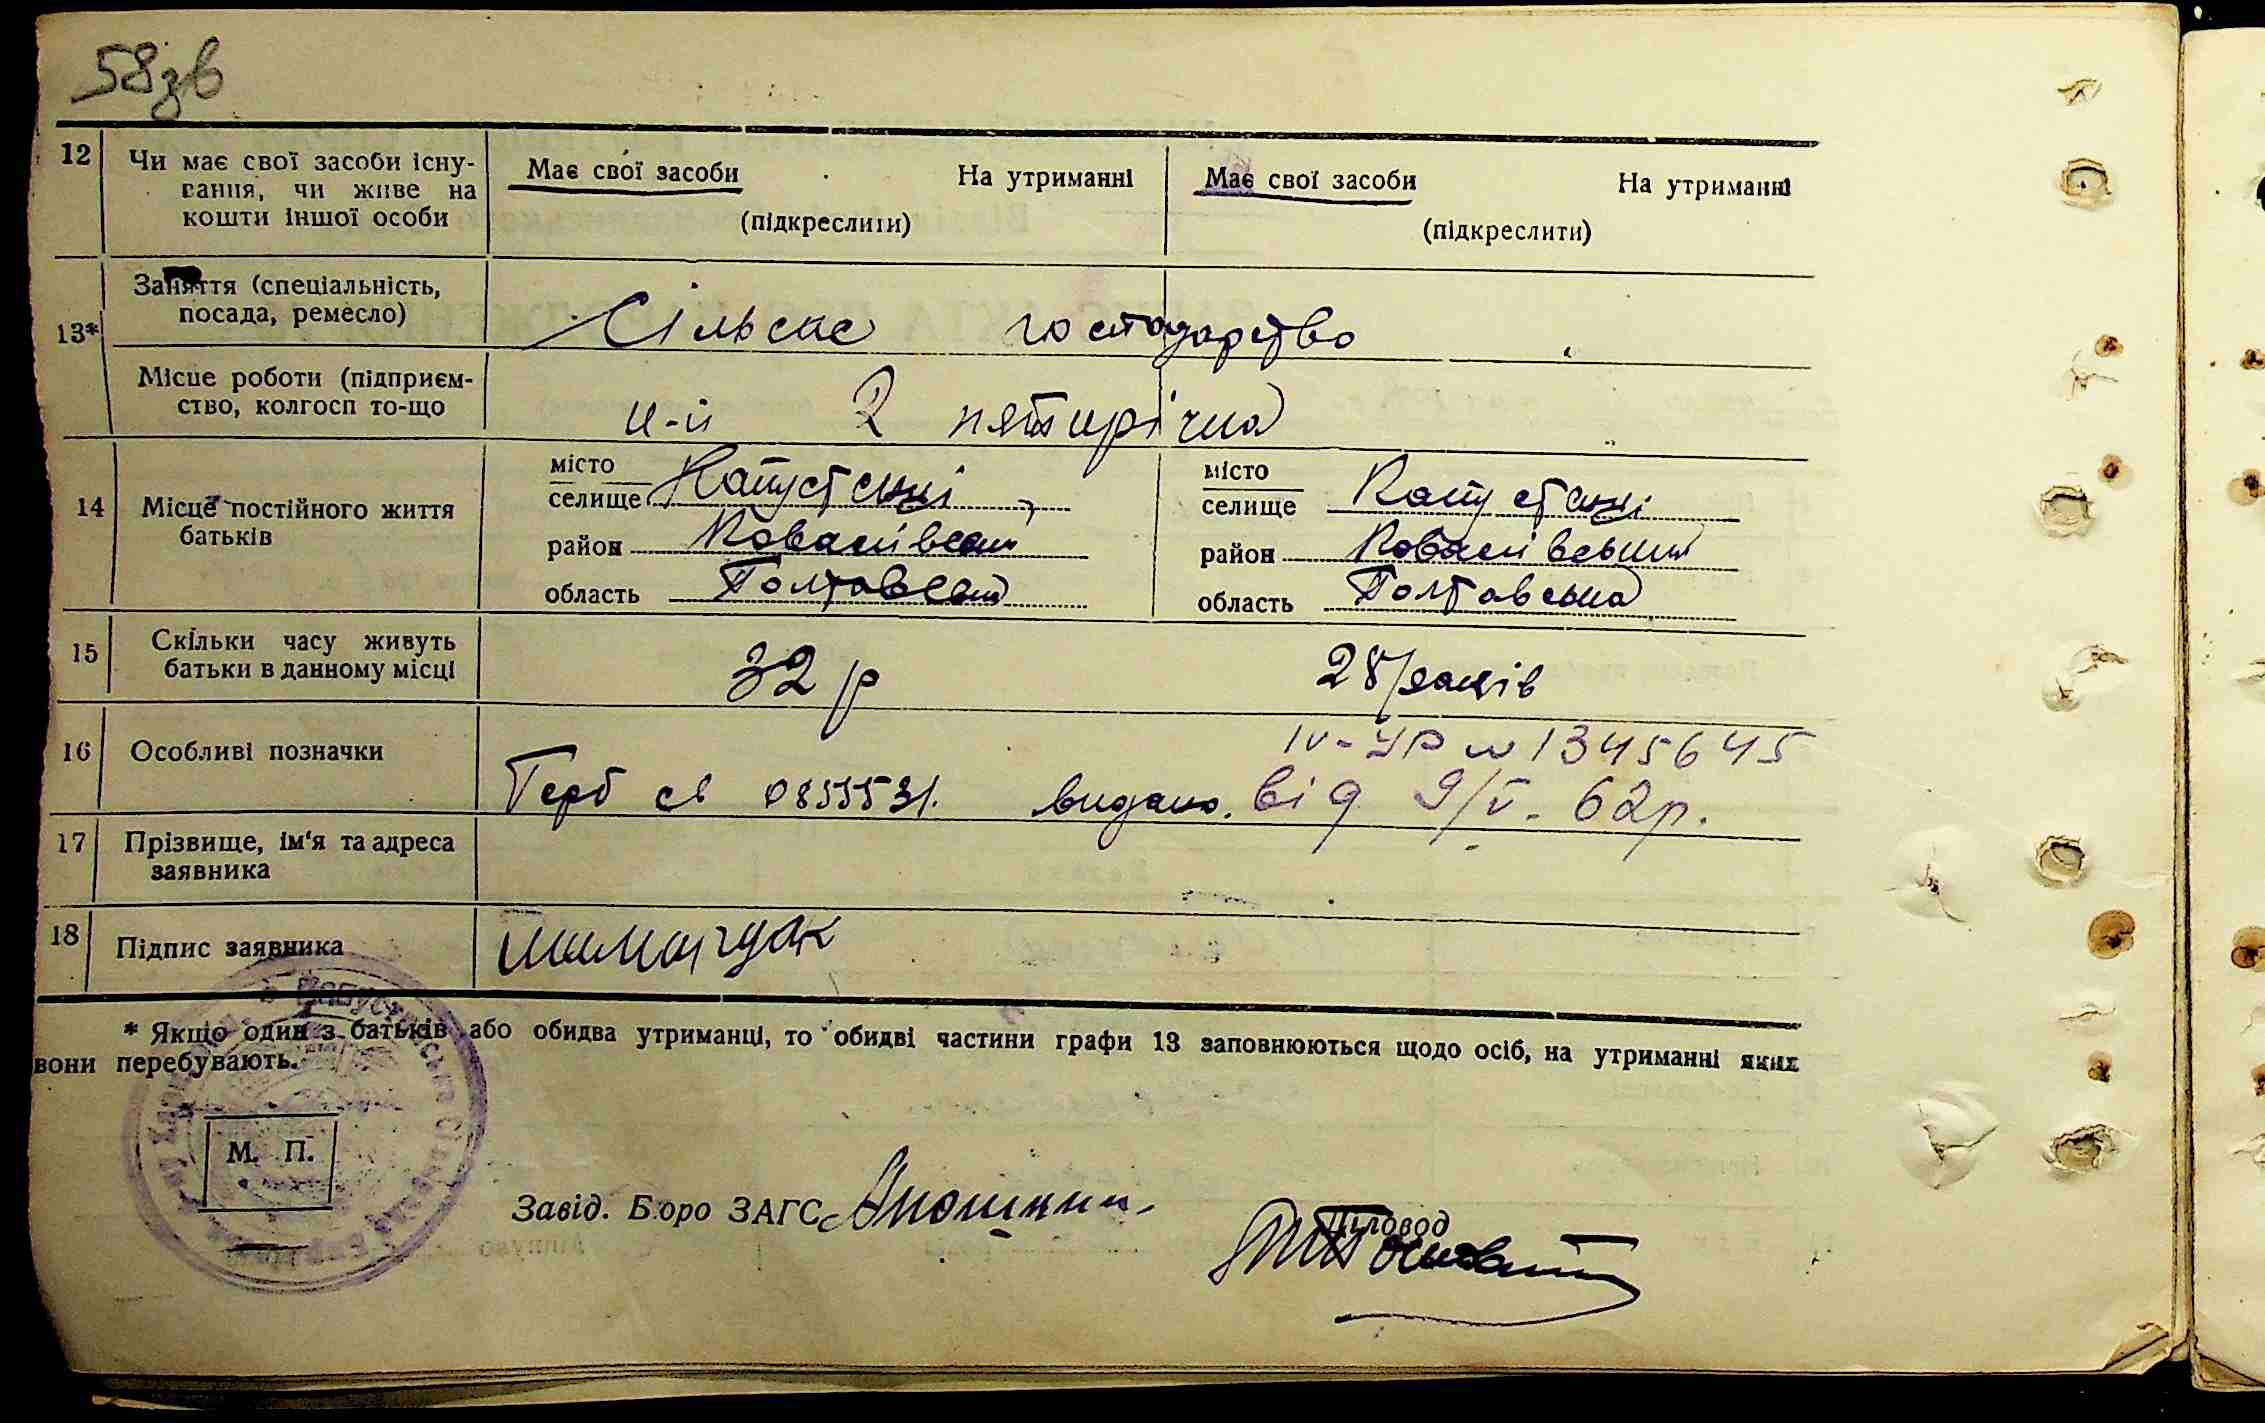 58зв
12 Чи має свої засоби існування, чи живе на кошти іншої особи
Має свої засоби На утриманні Має свої засоби На утриманні
(підкреслити) (підкреслити)
13* Заняття (спеціальність, посада, ремесло)
Сільске господарство
Місце роботи (підприємство, колгосп то-що)
2 пятирічка
14 Місце постійного життя батьків
місто
селище Капустенці
район
область
місто
селище Капустенці
район Ковалівський
область Полтавська
15 Скільки часу живуть батьки в данному місці
32 р 28 років
16 Особливі позначки
IV-УР № 1345645
Герб св 0855531. видано. від 9/V. 62р.
17 Прізвище, ім'я та адреса заявника
18 Підпис заявника
* Якщо один з батьків або обидва утриманці, то обидві частини графи 13 заповнюються щодо осіб, на утриманні яких
вони перебувають.
М. П.
Завід. Бюро ЗАГС
Діловод